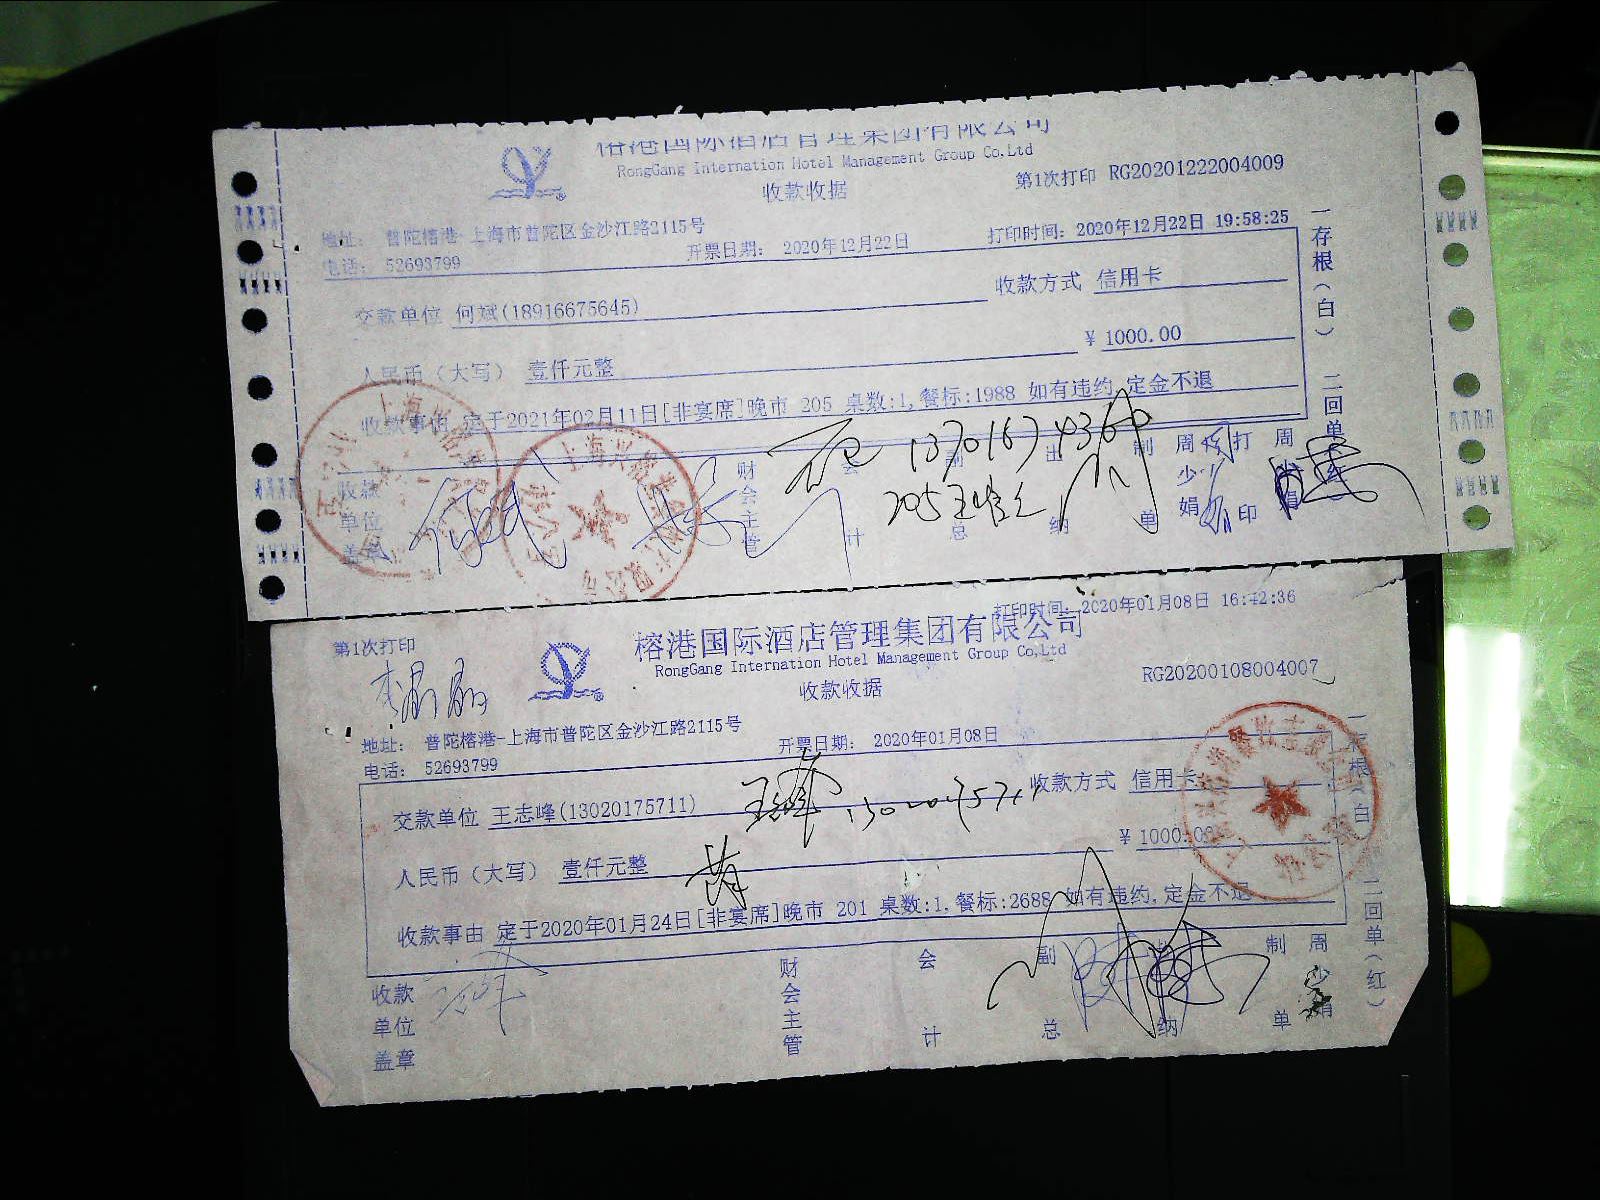 榕港国际酒店管理集团有限公司
RongGang Internation Hotel Management Group Co,Ltd
收款收据
第1次打印 RG20201222004009
地址： 普陀榕港-上海市普陀区金沙江路2115号
电话： 52693799
开票日期： 2020年12月22日
打印时间：2020年12月22日 19:58:25
交款单位 何斌(18916675645)
收款方式 信用卡
人民币（大写） 壹仟元整
¥ 1000.00
收款事由 定于2021年02月11日[非宴席]晚市 205 桌数:1,餐标:1988 如有违约,定金不退
收款单位盖章
财会主管
会计
副总
出纳
制单
周少娟
打印
周少娟
一存根（白） 二回单（红）
第1次打印
打印时间：2020年01月08日 16:42:36
榕港国际酒店管理集团有限公司
RongGang Internation Hotel Management Group Co,Ltd
收款收据
RG20200108004007
地址： 普陀榕港-上海市普陀区金沙江路2115号
电话： 52693799
开票日期： 2020年01月08日
交款单位 王志峰(13020175711)
收款方式 信用卡
人民币（大写） 壹仟元整
¥ 1000.00
收款事由 定于2020年01月24日[非宴席]晚市 201 桌数:1,餐标:2688 如有违约,定金不退
收款单位盖章
财会主管
会计
副总
纳
制单
周少娟
一存根（白） 二回单（红）